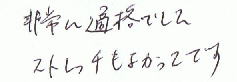 非常に適格でした
ストレッチもよかったです